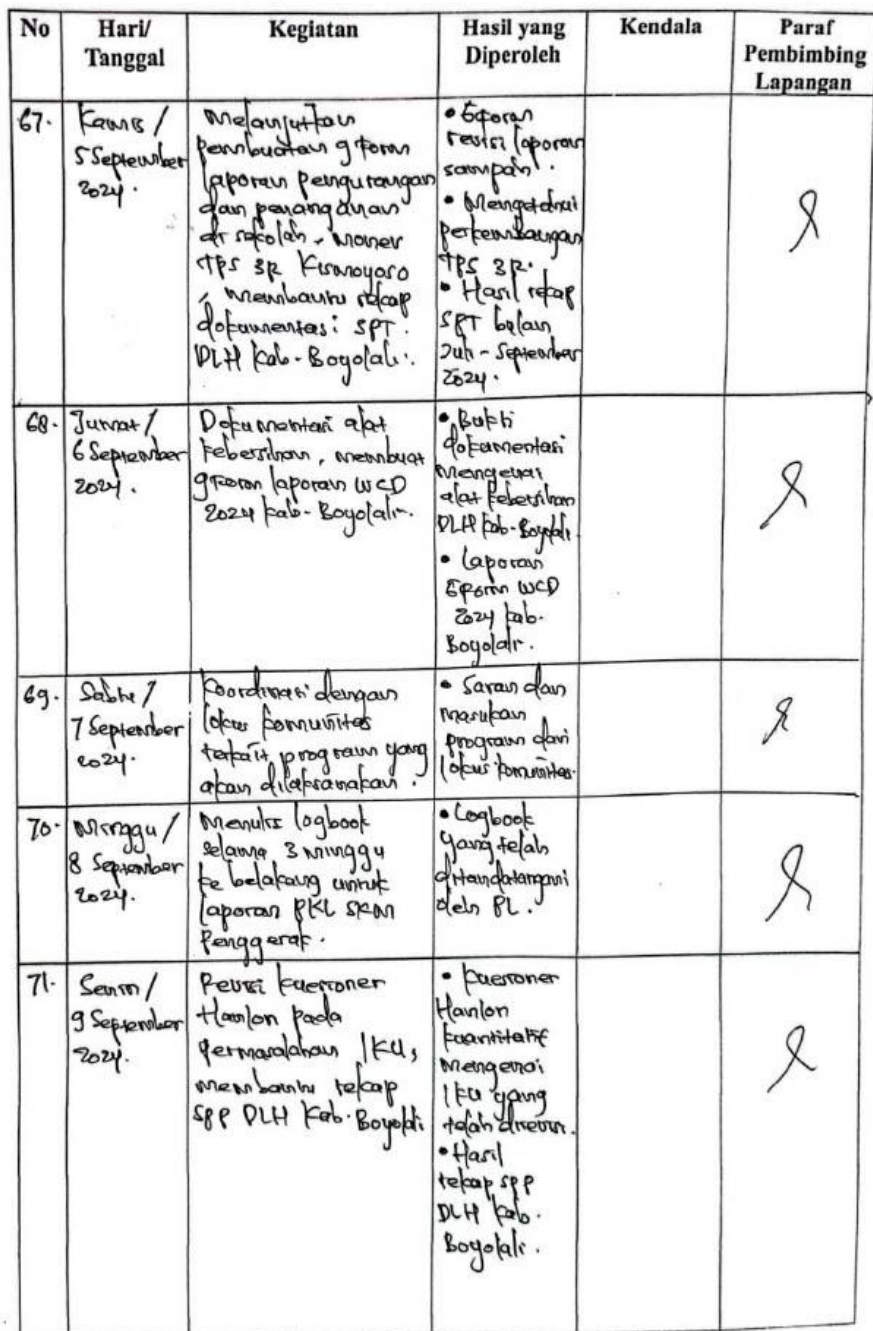 No
Hari/
Tanggal
Kegiatan
Hasil yang
Diperoleh
Kendala
Paraf
Pembimbing
Lapangan
67.
Kamis /
5 September
2024.
Melanjutkan
pembuatan gform
laporan pengurangan
dan penanganan
di sekolah, monev
TPS 3R Kismoyoso
, membantu rekap
dokumentasi SPT.
DLH Kab. Boyolali.
• Gform
revisi laporan
sampah.
• Mengetahui
perkembangan
TPS 3R.
• Hasil rekap
SPT bulan
Juli - September
2024.
68.
Jumat /
6 September
2024.
Dokumentasi alat
kebersihan, membuat
gform laporan WCD
2024 kab. Boyolali.
• Bukti
dokumentasi
mengenai
alat kebersihan
DLH Kab. Boyolali
• Laporan
Gform WCD
2024 kab.
Boyolali.
69.
Sabtu /
7 September
2024.
Koordinasi dengan
lokus komunitas
terkait program yang
akan dilaksanakan.
• Saran dan
masukan
program dari
lokus komunitas.
70.
Minggu /
8 September
2024.
Menulis logbook
selama 3 minggu
ke belakang untuk
laporan PKL SKM
Penggerak.
• Logbook
yang telah
ditandatangani
oleh PL.
71.
Senin /
9 September
2024.
Revisi kuesioner
Hanlon pada
permasalahan IKU,
membantu rekap
SPP DLH Kab. Boyolali
• Kuesioner
Hanlon
kuantitatif
mengenai
IKU yang
telah direvisi.
• Hasil
rekap SPP
DLH Kab.
Boyolali.